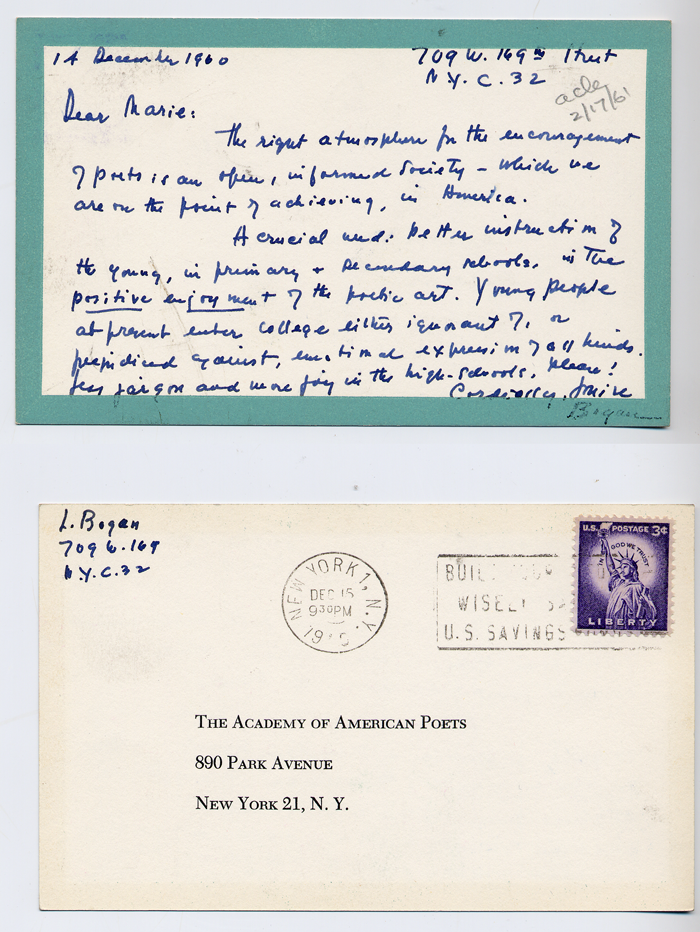 14 December 1960
709 W. 169th Street
N.Y.C. 32
ack
2/17/61
Dear Marie:
The right atmosphere for the encouragement
of poets is an open, informed Society – which we
are on the point of achieving, in America.
A crucial need: better instruction of
the young, in primary + secondary schools, in the
positive enjoyment of the poetic art. Young people
at present enter college either ignorant of, or
prejudiced against, emotional expression of all kinds.
Less jargon and more joy in the high-schools, please!
Cordially, Louise
Bogan
L. Bogan
709 W. 169
N.Y.C. 32
NEW YORK 1, N.Y.
DEC 15
930PM
U.S. POSTAGE 3¢
IN GOD WE TRUST
LIBERTY
WISELY
U.S. SAVINGS
THE ACADEMY OF AMERICAN POETS
890 PARK AVENUE
NEW YORK 21, N. Y.